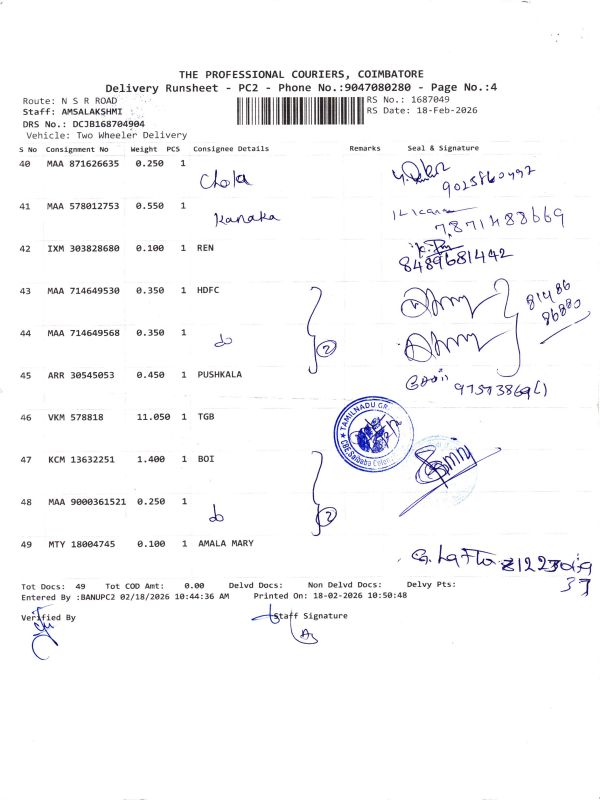 THE PROFESSIONAL COURIERS, COIMBATORE
Delivery Runsheet - PC2 - Phone No.:9047080280 - Page No.:4
Route: N S R ROAD RS No.: 1687049
Staff: AMSALAKSHMI RS Date: 18-Feb-2026
DRS No.: DCJB168704904
Vehicle: Two Wheeler Delivery
S No Consignment No Weight PCS Consignee Details Remarks Seal & Signature
40 MAA 871626635 0.250 1 Chola
41 MAA 578012753 0.550 1 Kanaka 7871488669
42 IXM 303828680 0.100 1 REN 8489681442
43 MAA 714649530 0.350 1 HDFC 81486 86880
44 MAA 714649568 0.350 1 do 2
45 ARR 30545053 0.450 1 PUSHKALA
46 VKM 578818 11.050 1 TGB TAMILNADU GR
47 KCM 13632251 1.400 1 BOI
48 MAA 9000361521 0.250 1 do 2
49 MTY 18004745 0.100 1 AMALA MARY
Tot Docs: 49 Tot COD Amt: 0.00 Delvd Docs: Non Delvd Docs: Delvy Pts:
Entered By :BANUPC2 02/18/2026 10:44:36 AM Printed On: 18-02-2026 10:50:48
Verified By Staff Signature